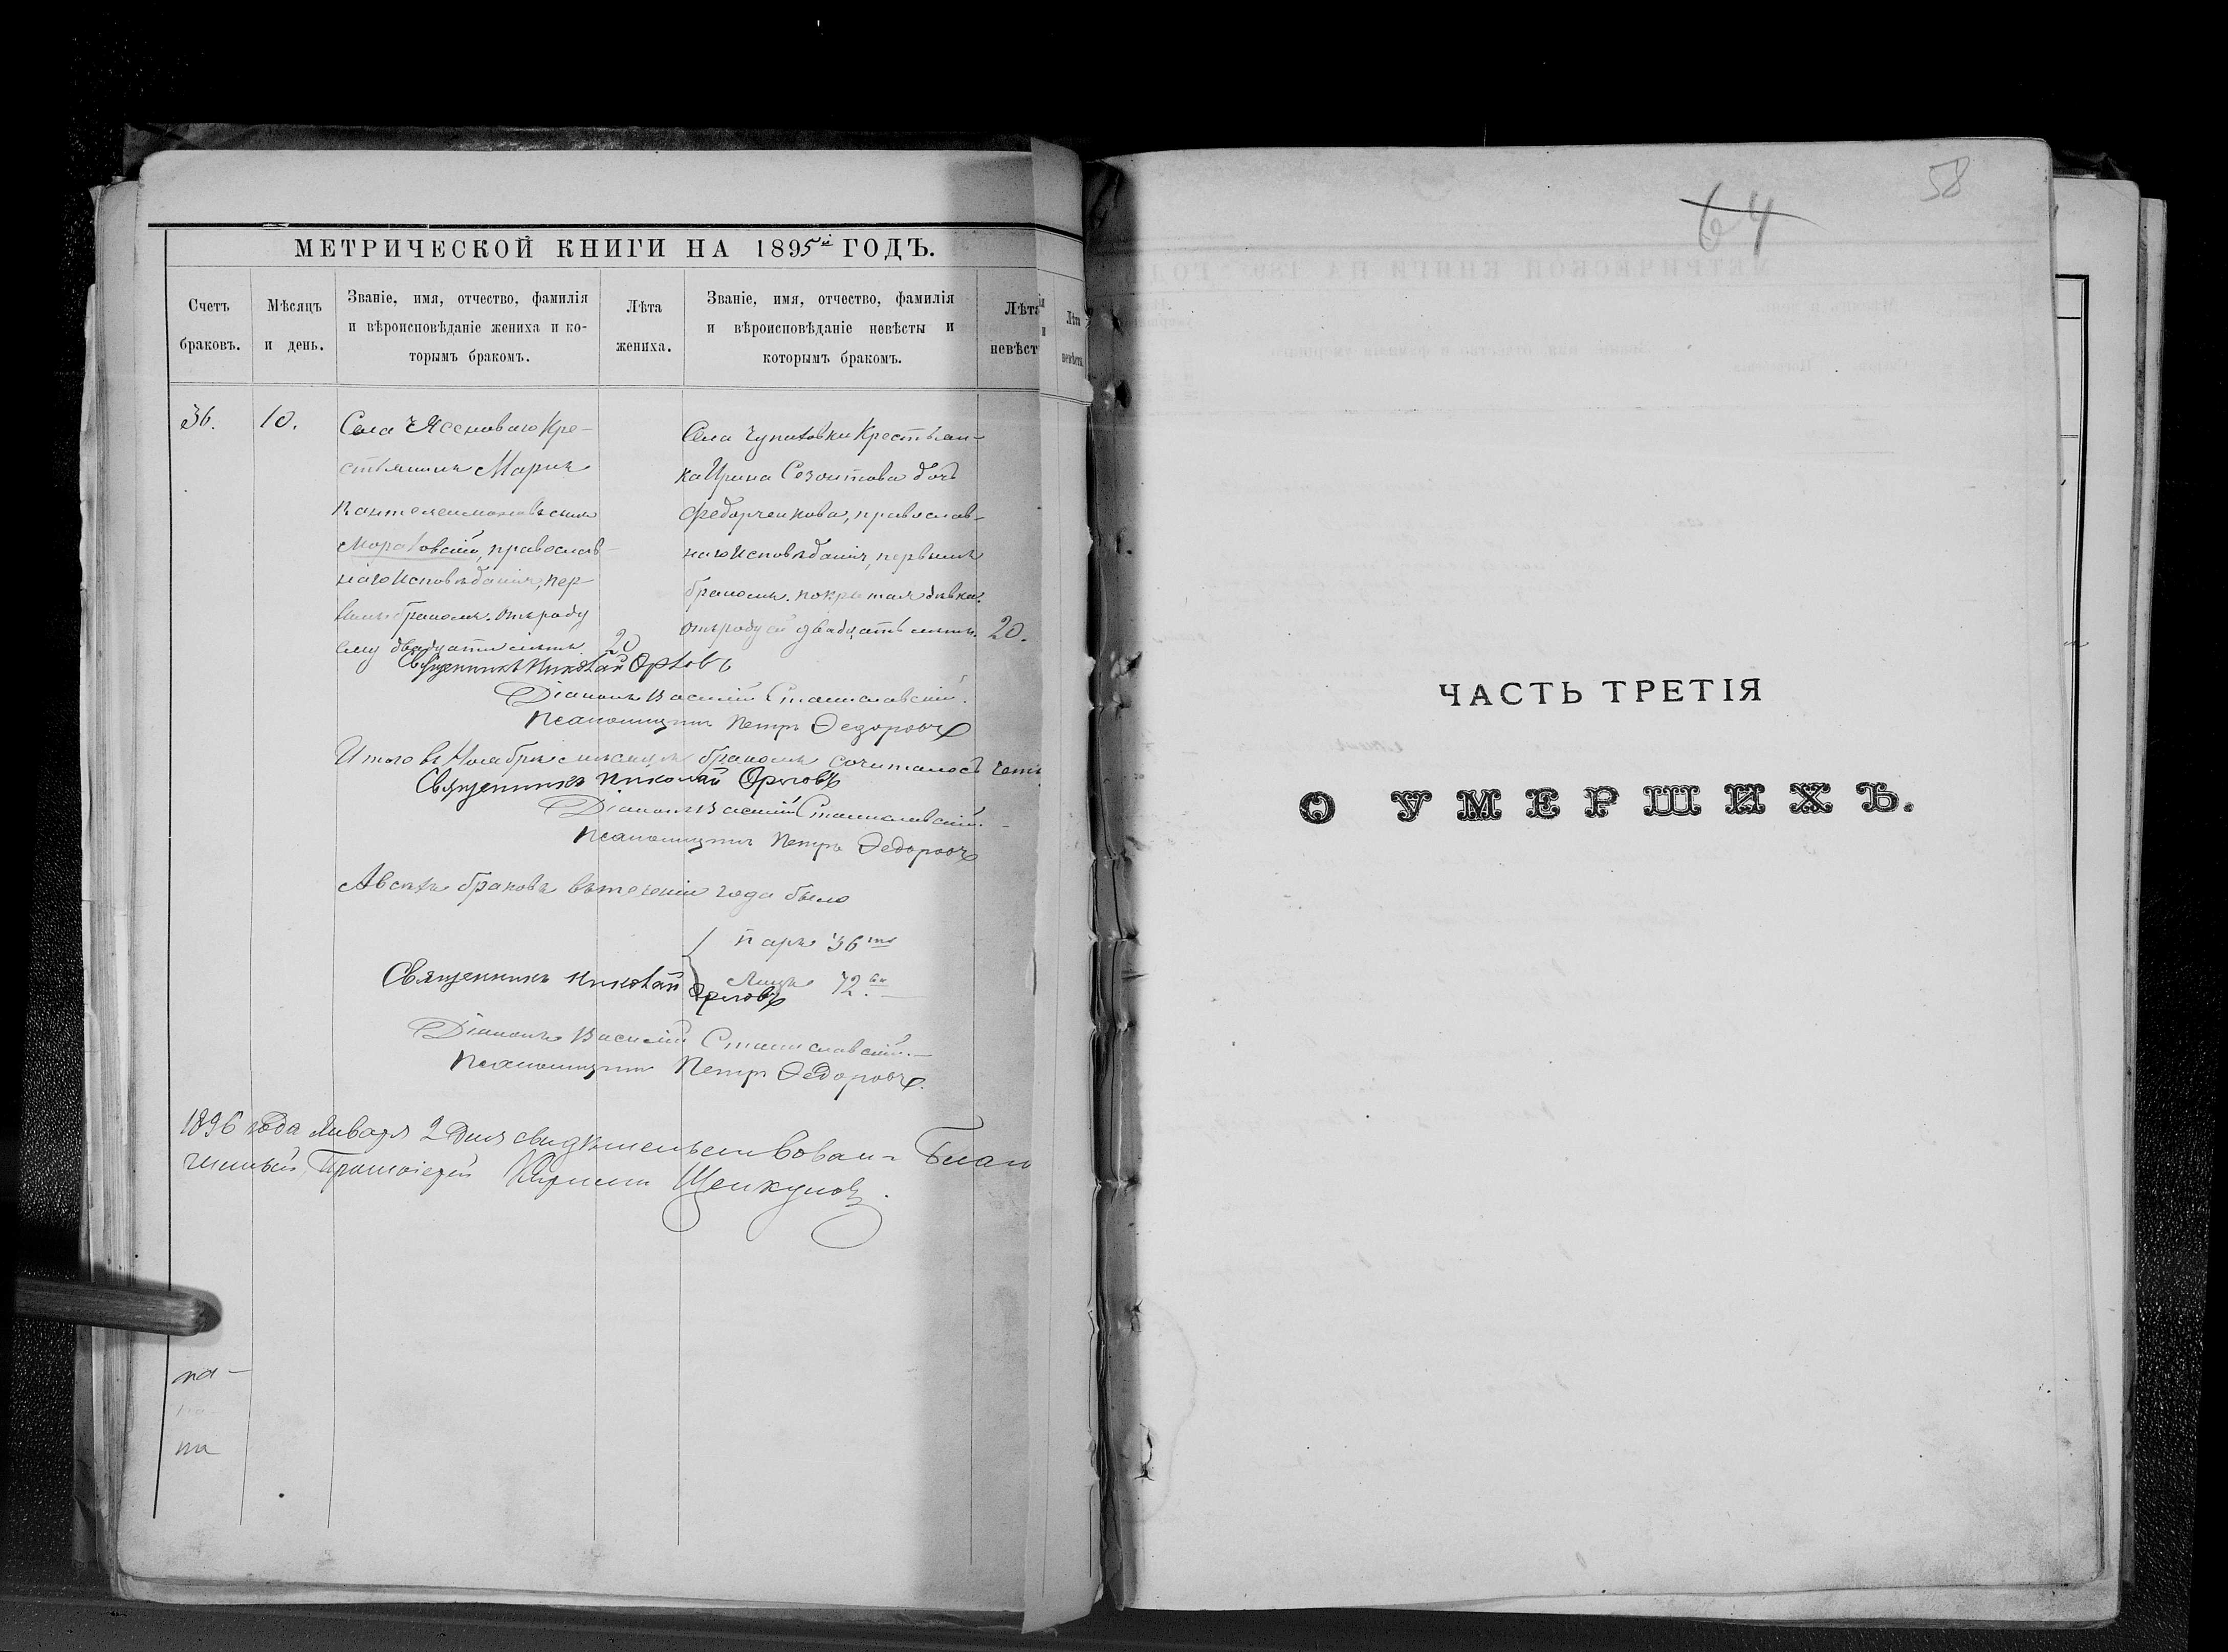 МЕТРИЧЕСКОЙ КНИГИ НА 1895й ГОДЪ.
Счетъ браковъ.
Мѣсяцъ и день.
Званіе, имя, отчество, фамилія
и вѣроисповѣданіе жениха и ко-
торымъ бракомъ.
Лѣта жениха.
Званіе, имя, отчество, фамилія
и вѣроисповѣданіе невѣсты и
которымъ бракомъ.
Лѣта
невѣст
Лѣта
невѣсты
36.
10.
Села Ясеноваго Кре-
стьянинъ Марко
Пантелеимоновъ сынъ
Мораховскій, православ-
наго исповѣданія, пер-
вымъ бракомъ. отъ роду
ему двадцать лѣтъ.
20
Села Чупаховки Крестьян-
ка Ирина Созонтова дочь
Федорченкова, православ-
наго исповѣданія, первымъ
бракомъ. покрытая дѣвка.
отъ роду ей двадцать лѣтъ.
20.
Священникъ Николай Орловъ
Діаконъ Василій Станиславскій.
Псаломщикъ Петръ Федоровъ
Итого въ Ноябрѣ мѣсяцѣ бракомъ сочеталось четы
Священникъ Николай Орловъ
Діаконъ Василій Станиславскій.
Псаломщикъ Петръ Федоровъ
А всѣхъ браковъ въ теченіи года было
паръ 36ть
Лицъ 72ва
Священникъ Николай Орловъ
Діаконъ Василій Станиславскій.
Псаломщикъ Петръ Федоровъ.
1896 года Января 2 дня свидѣтельствовалъ Благо
чинный, Протоіерей
на
58
64
ЧАСТЬ ТРЕТІЯ
О УМЕРШИХЪ.